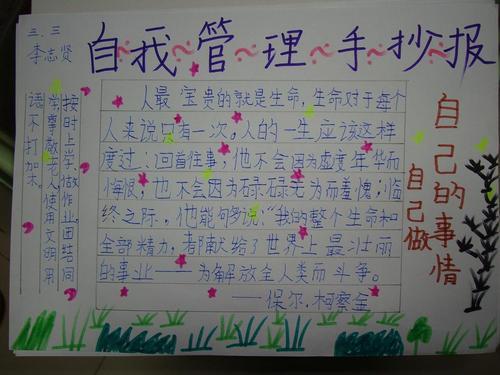 三.三
李志贤
自我管理手抄报
人最宝贵的就是生命，生命对于每个
人来说只有一次。人的一生应该这样
度过：回首往事，他不会因为虚度年华而
悔恨；也不会因为碌碌无为而羞愧；临
终之际，他能够说："我的整个生命和
全部精力，都献给了世界上最壮丽
的事业——为解放全人类而斗争。
——保尔.柯察金
按时上学，做作业，团结同
学，尊敬老人，使用文明用
语，不打架。
自己的事情
自己做